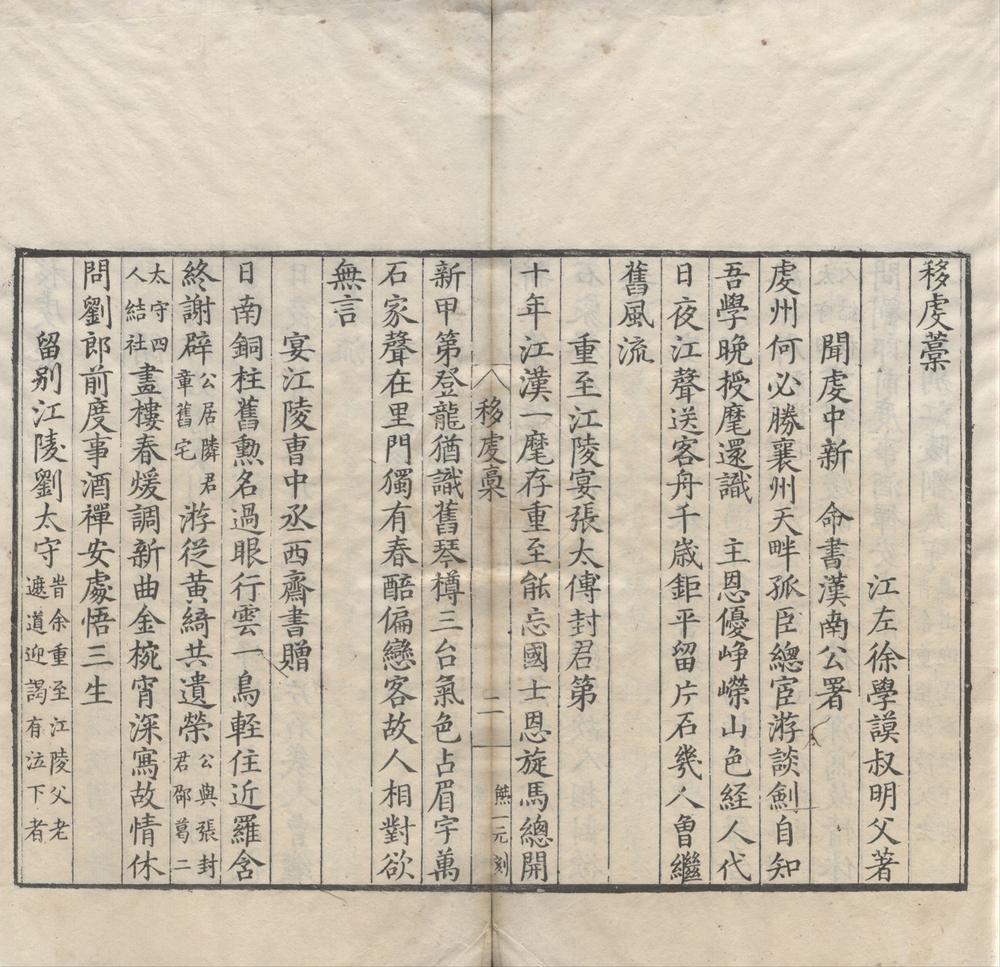 移虔藁
江左徐學謨叔明父著
聞虔中新　命書漢南公署
虔州何必勝襄州天畔孤臣總宦游談劍自知
吾學晚授麾還識　主恩優崢嶸山色経人代
日夜江聲送客舟千歳鉅平留片石幾人曾繼
舊風流
重至江陵宴張太傅封君第
十年江漢一麾存重至能忘國士恩旋馬總開
移虔稾
二
熊一元刻
新甲第登龍猶識舊琴樽三台氣色占眉宇萬
石家聲在里門獨有春醅偏戀客故人相對欲
無言
宴江陵曹中丞西齋書贈
日南銅柱舊勲名過眼行雲一鳥輕住近羅含
終謝辟公居隣君章舊宅游從黄綺共遺榮公與張封君邵葛二
太守四人結社畫樓春煖調新曲金椀宵深寫故情休
問劉郎前度事酒禪安處悟三生
留別江陵劉太守昔余重至江陵父老遮道迎謁有泣下者